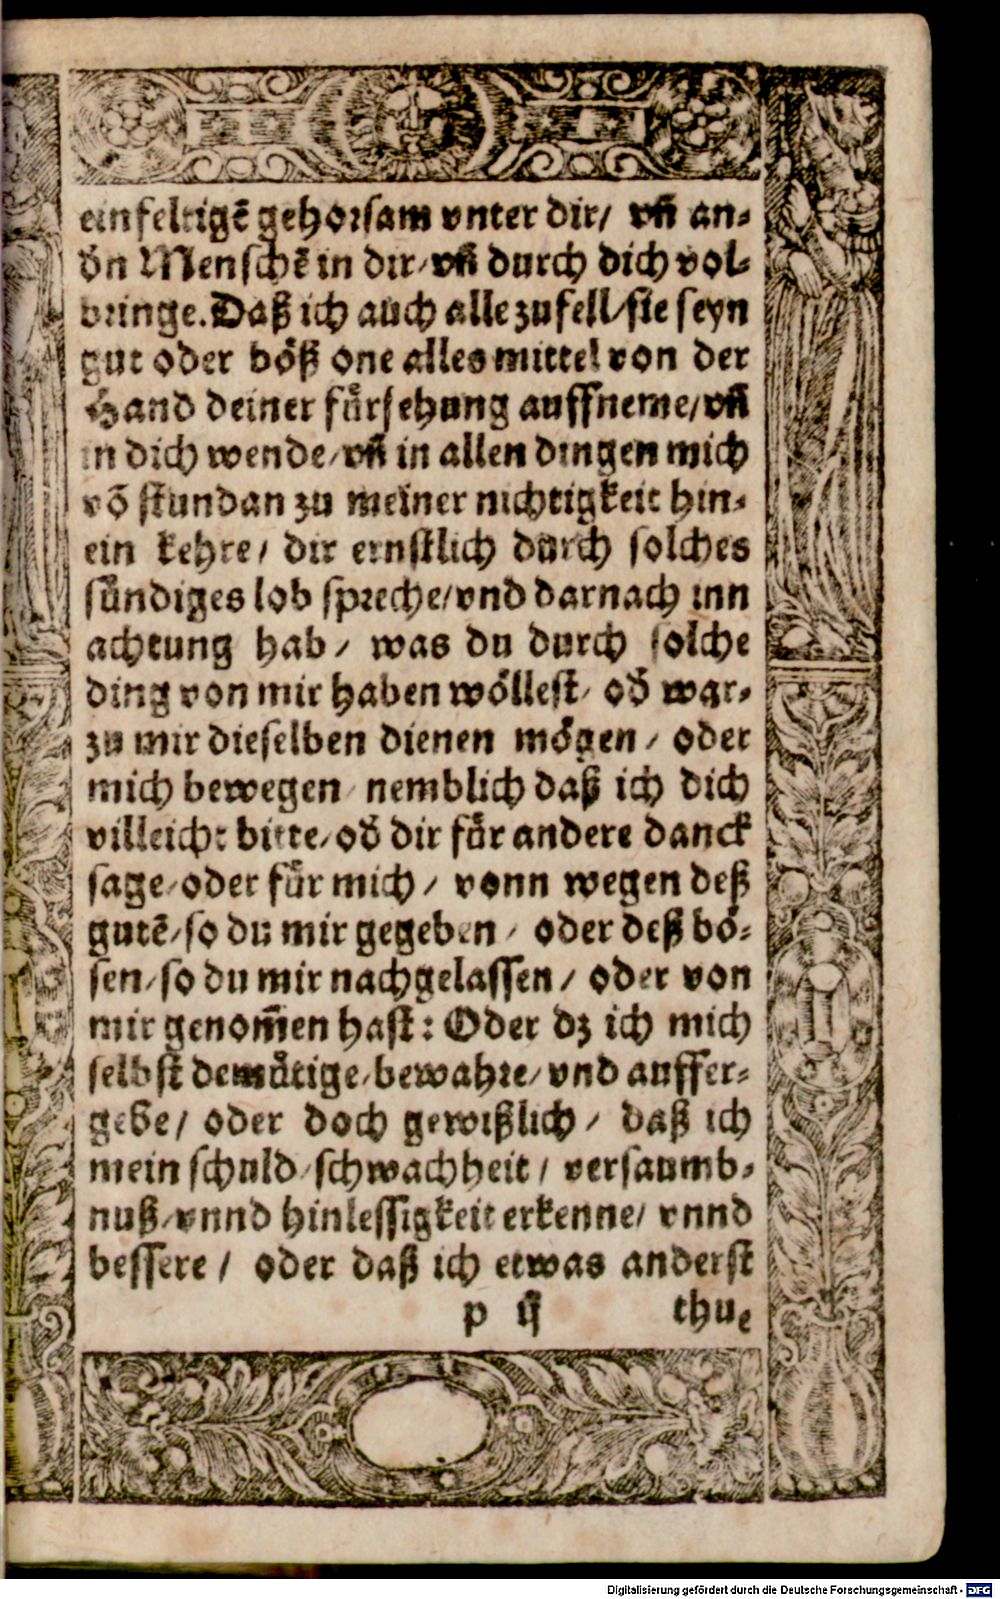 einfeltigē gehorsam vnter dir/ vñ an-
dn̄ Menschē in dir/ vñ durch dich vol-
bringe. Daß ich auch alle zufell/ sie seyn
gut oder böß one alles mittel von der
Hand deiner fürsehung auffneme/ vñ
in dich wende/ vñ in allen dingen mich
vō stundan zu meiner nichtigkeit hin-
ein kehre/ dir ernstlich durch solches
sündiges lob spreche/ vnd darnach inn
achtung hab/ was du durch solche
ding von mir haben wöllest/ od̄ war-
zu mir dieselben dienen mögen/ oder
mich bewegen/ nemblich daß ich dich
villeicht bitte/ od̄ dir für andere danck
sage/ oder für mich/ vonn wegen deß
gutē/ so du mir gegeben/ oder deß bö-
sen/ so du mir nachgelassen/ oder von
mir genom̄en hast: Oder dz ich mich
selbst demütige/ bewahre/ vnd auffer-
gebe/ oder doch gewißlich/ daß ich
mein schuld/ schwachheit/ versaumb-
nuß/ vnnd hinlessigkeit erkenne/ vnnd
bessere/ oder daß ich etwas anderst
p ij thue
Digitalisierung gefördert durch die Deutsche Forschungsgemeinschaft - DFG